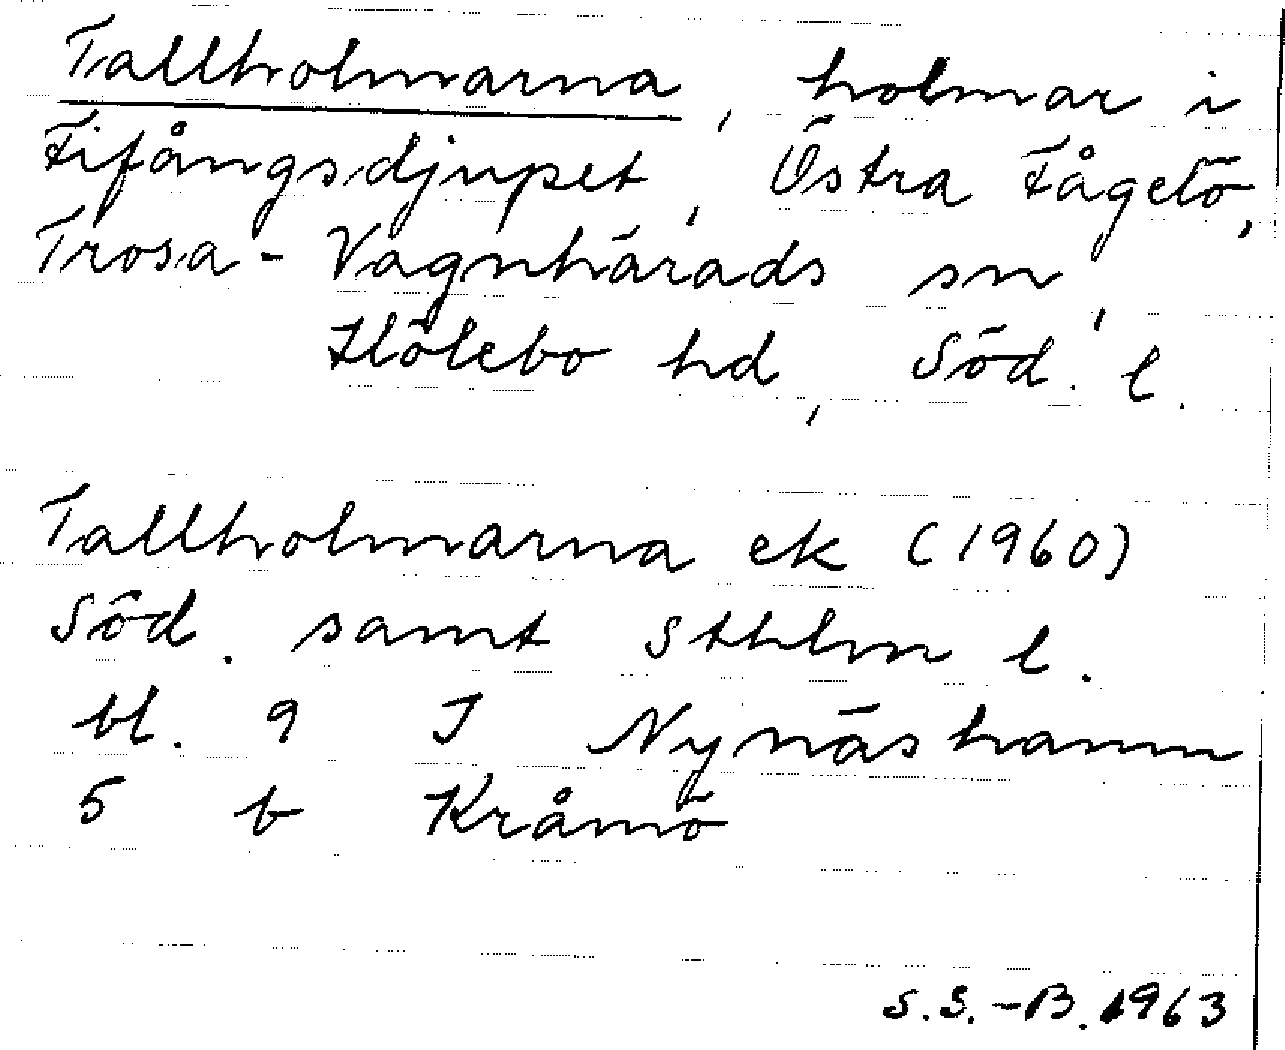 Tallholmarna, holmar i
Fifångsdjupet, Östra Fågelö,
Trosa-Vagnhärads sn,
Hölebo hd, Söd. l.
Tallholmarna ek (1960)
Söd. samt Sthlm l.
bl. 9 I Nynäshamn
5 b Kråmö
S.S.-B. 1963